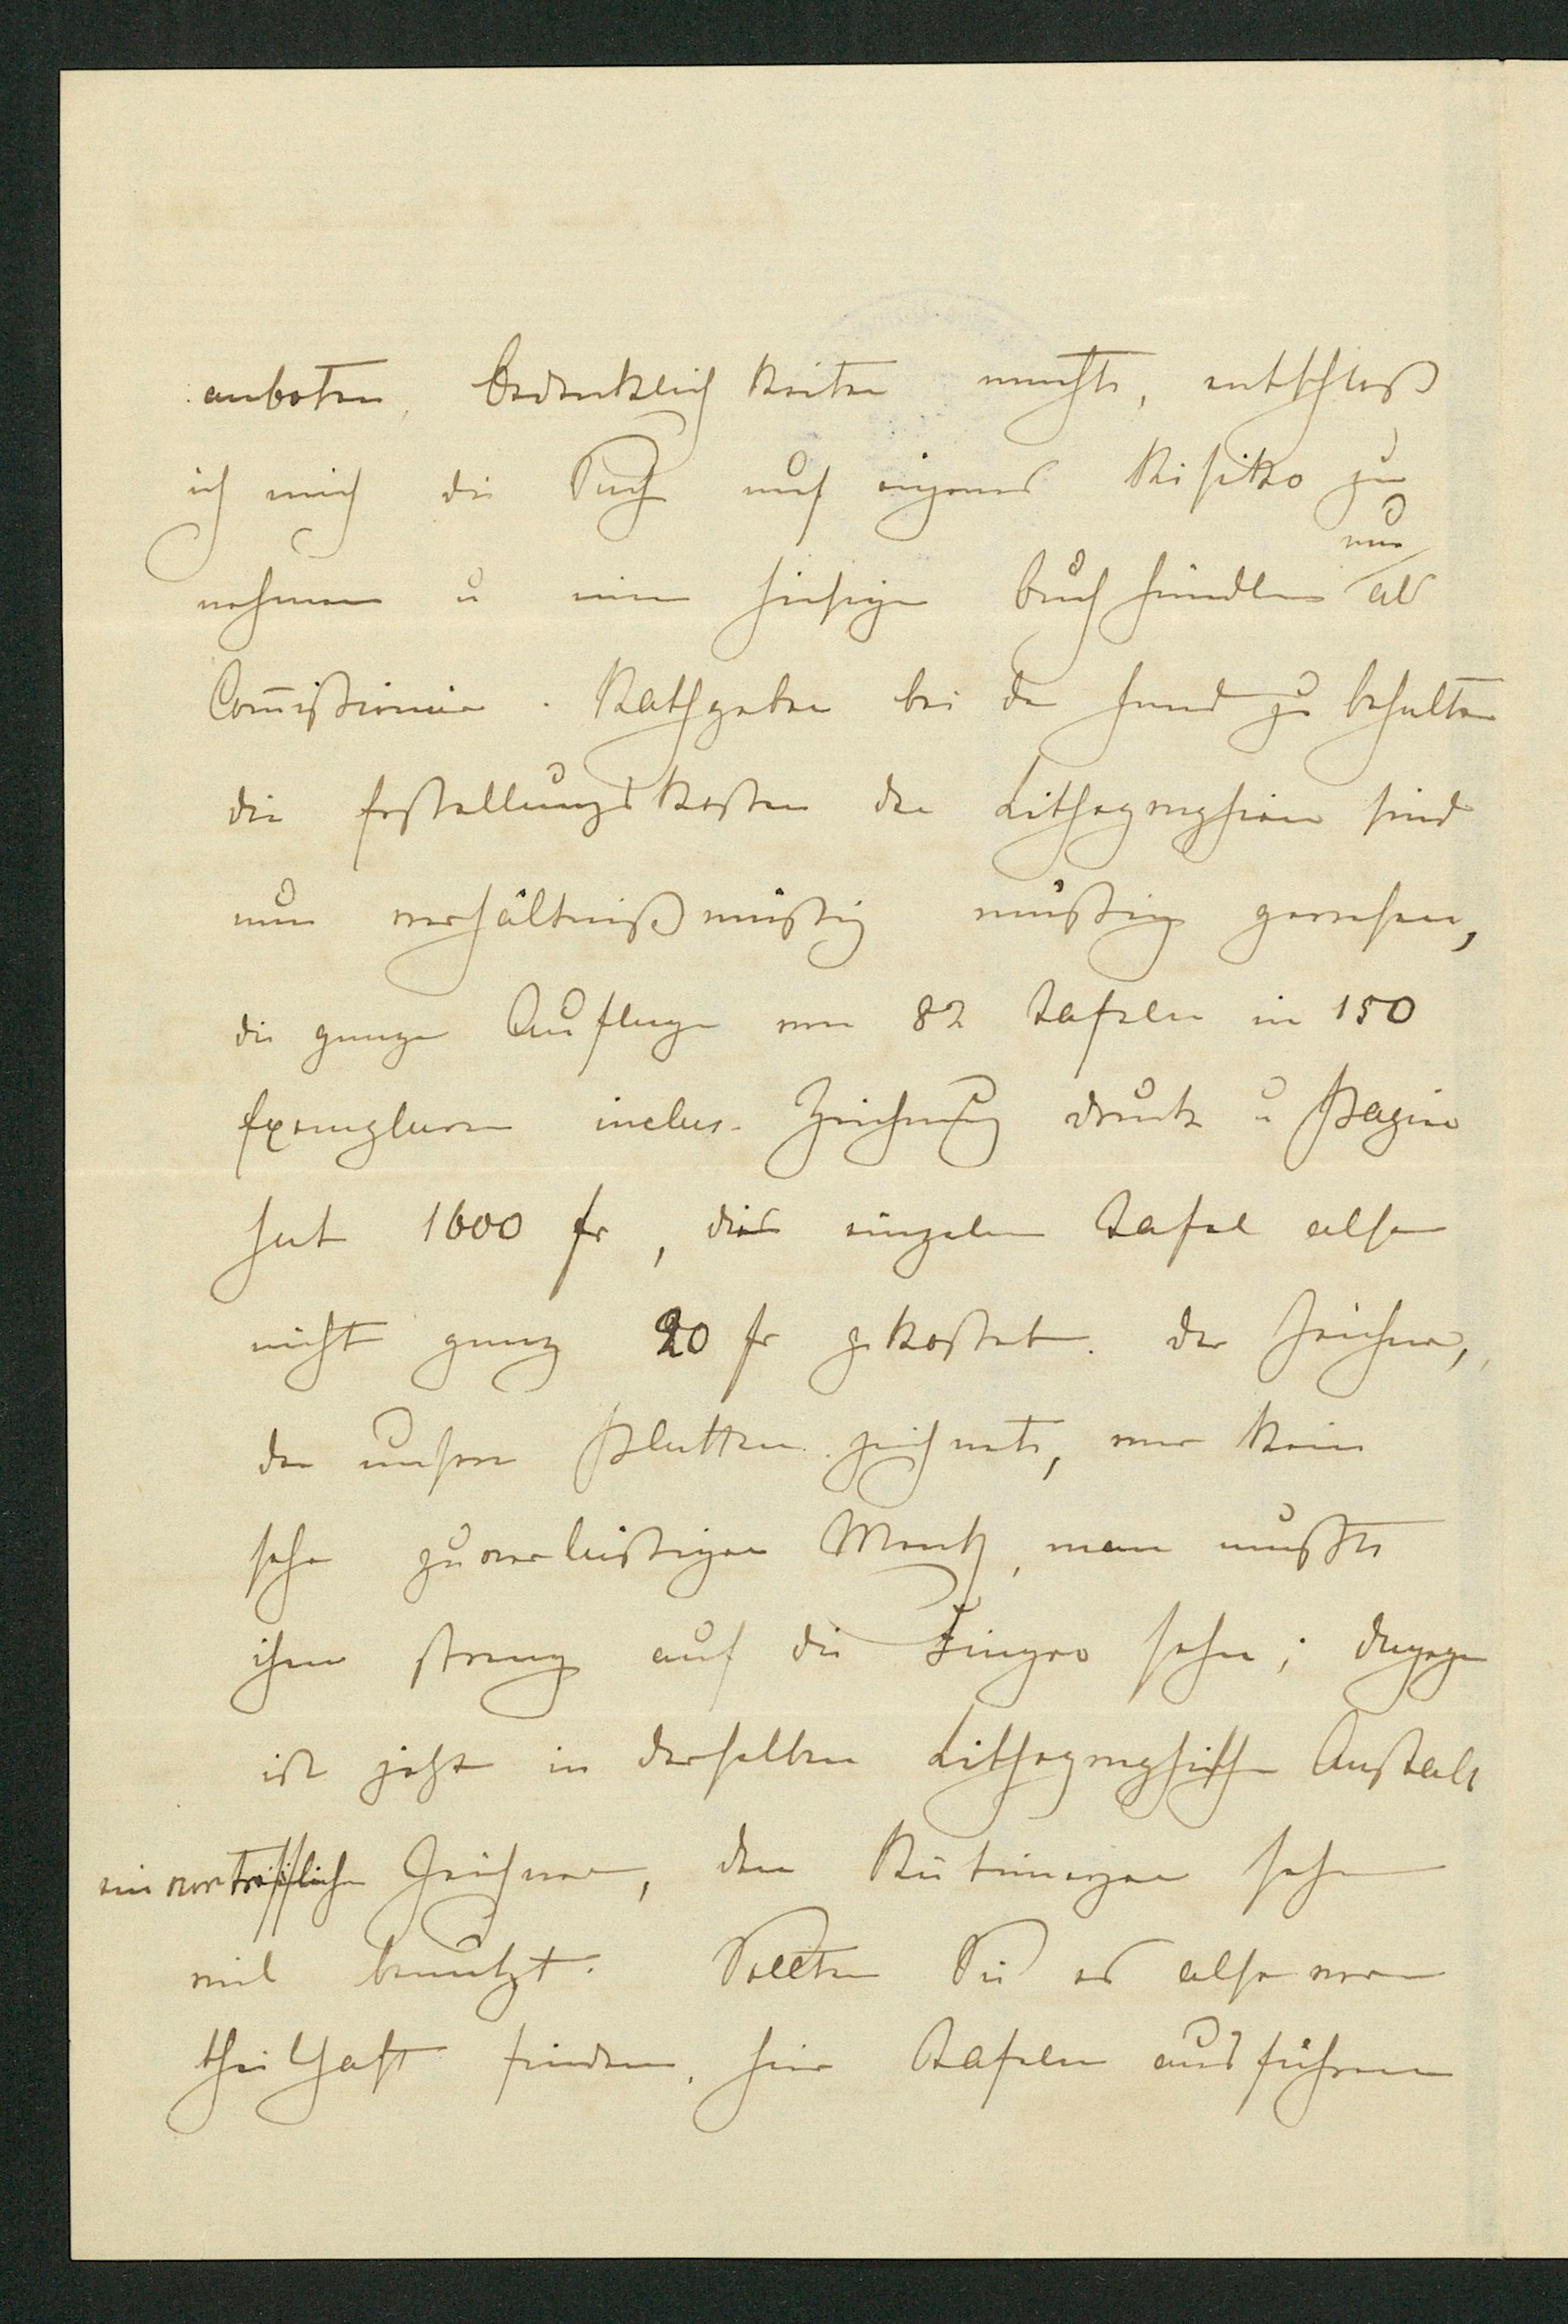 anboten, Bedenklichkeiten machte, entschloß
ich mich die Sache auf eigenes Risiko zu
nehmen u einen hiesigen Buchhändler nur als
Com̄issionär. Rathgeber bei der Hand zu behalten
die Erstellungskosten der Lithographien sind
nun verhältnißmäßig mäßig gewesen,
die ganze Auflage von 82 Tafeln in 150
Exemplaren inclus. Zeichnung Druck u Papier
hat 1600 fr, die einzelne Tafel also
nicht ganz 20 fr gekostet. Der Zeichner,
der unsere Platten zeichnete, war kein
sehr zuverlässiger Mensch, man mußte
ihm streng auf die Finger sehen; dagegen
ist jetzt in derselben Lithographischen Anstalt
ein vortrefflicher Zeichner, den Rütimeyer sehr
viel benützt. Sollten Sie es also vor
theilhaft finden, hier Tafeln ausführen